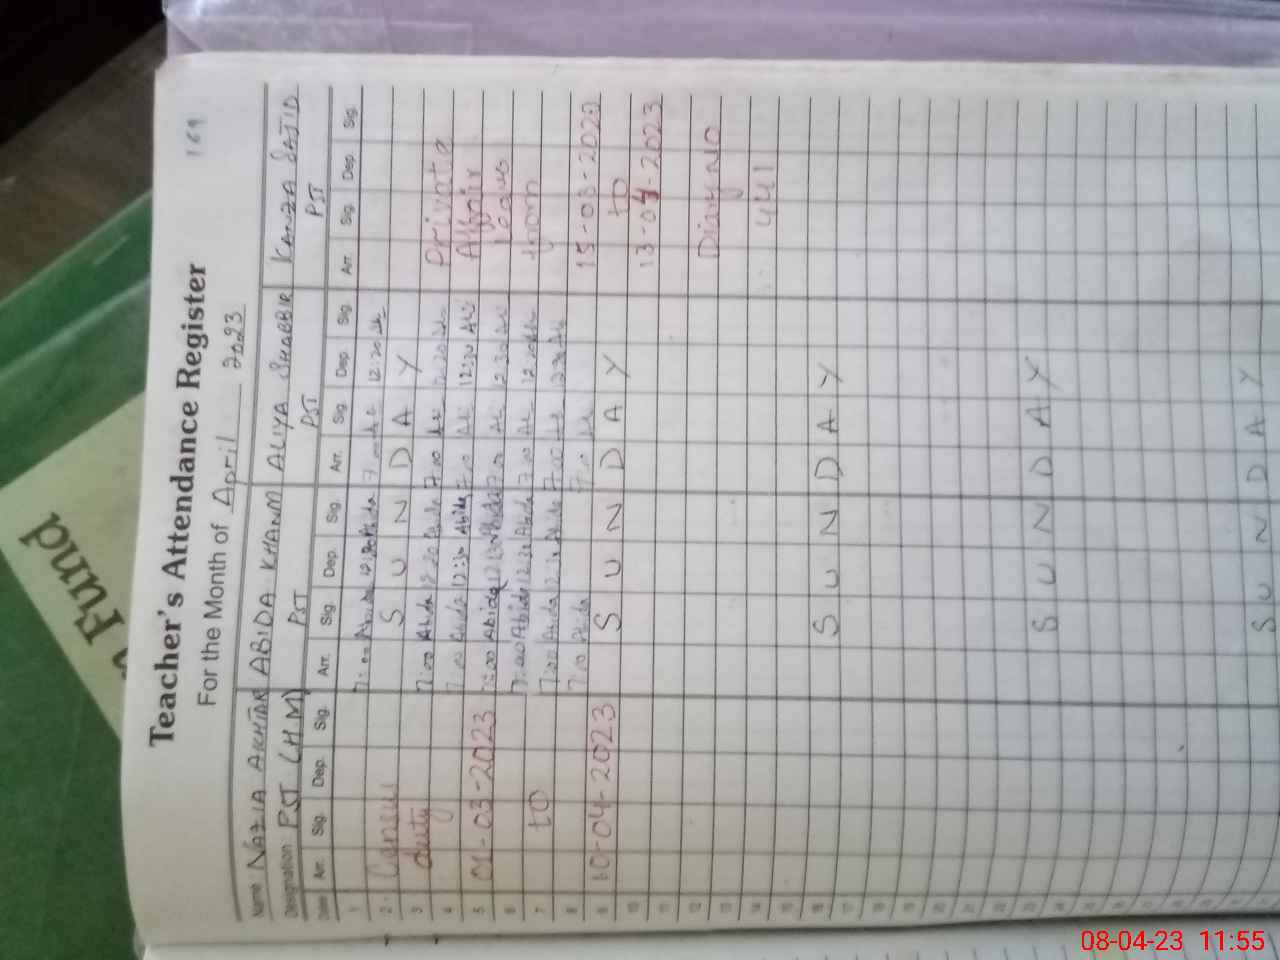 169
Teacher's Attendance Register
For the Month of April 2023
Name NAZIA AKHTAR ABIDA KHANM ALIYA SHABBIR KANZA SAJID
Designation PST (H.M) PST PST PST
Date Arr. Sig. Dep. Sig. Arr. Sig. Dep. Sig. Arr. Sig. Dep. Sig. Arr. Sig. Dep. Sig.
1 7:00 Abida 12:20 Abida 7:00 12:20
2 S U N D A Y
3 duty 7:00 Abida 12:20 Abida 7:00 12:20 Private
4 7:00 Abida 12:30 Abida 7:00 12:30 Affair
5 01-03-2023 7:00 Abida 12:30 Abida 7:00 12:30 Leave
6 7:00 Abida 12:20 Abida 7:00 12:20 from
7 to 7:00 Abida 12:30 Abida 7:00 12:30
8 7:00 Abida 7:00 15-03-2023
9 10-04-2023 S U N D A Y to
10 13-04-2023
11
12 Diary no
13
14 441
15
16 S U N D A Y
17
18
19
20
21
22
23 S U N D A Y
24
25
26
27
28
29
S U N D A Y
Fund
08-04-23 11:55